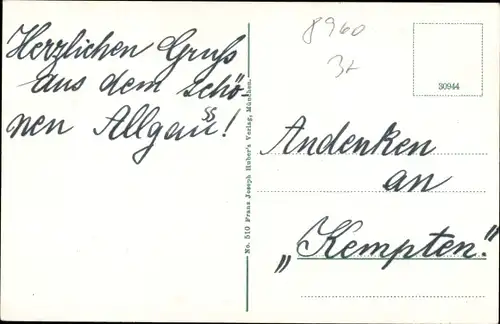 Herzlichen Gruß
aus dem schö-
nen Allgäu!
No. 510 Franz Joseph Huber's Verlag, München.
8960
30944
Andenken
an
„Kempten."